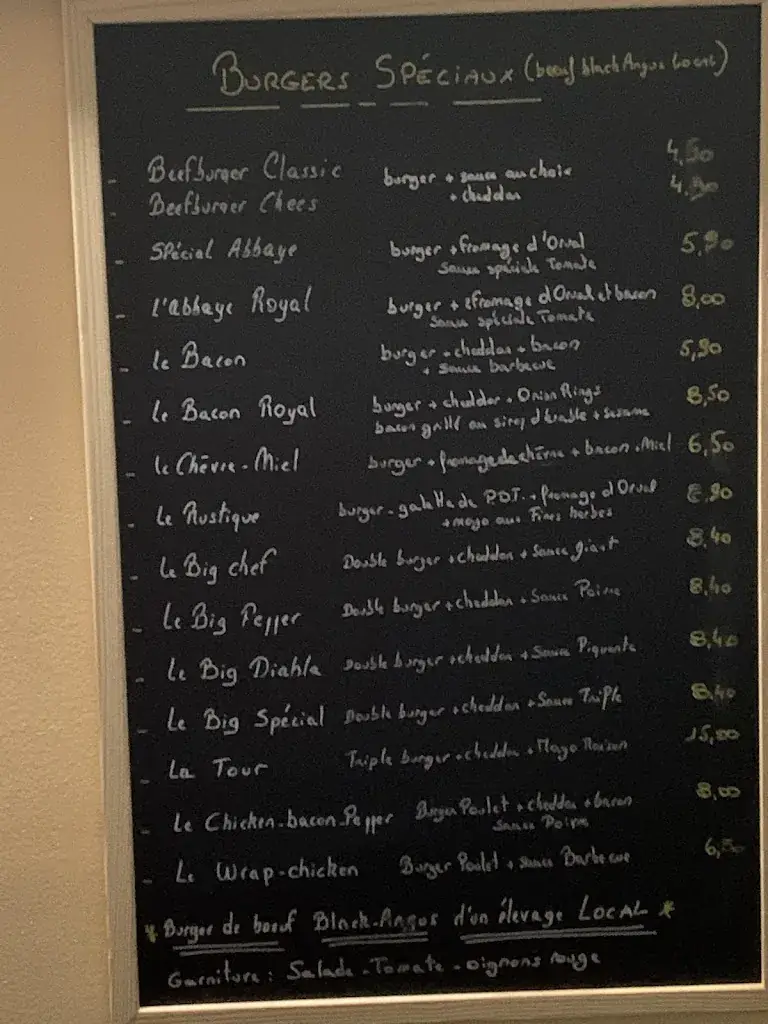 BURGERS SPÉCIAUX (boeuf black Angus Local)
- Beefburger Classic burger + sauce au choix 4,50
- Beefburger Chees + cheddar 4,90
- Spécial Abbaye burger + fromage d'Orval 5,90
Sauce spéciale Tomate
- L'abbaye Royal burger + fromage d'Orval et bacon 8,00
Sauce spéciale Tomate
- Le Bacon burger + cheddar + bacon 5,90
+ sauce barbecue
- Le Bacon Royal burger + cheddar + Onion Rings 8,50
bacon grillé au sirop d'érable + sesame
- Le Chèvre-Miel burger + fromage de chèvre + bacon + Miel 6,50
- Le Rustique burger - galette de P.D.T. + fromage d'Orval
+ mayo aux Fines herbes
- Le Big chef Double burger + cheddar + Sauce giant 8,40
- Le Big Pepper Double burger + cheddar + Sauce Poivre 8,40
- Le Big Diabla Double burger + cheddar + Sauce Piquante 8,40
- Le Big Spécial Double burger + cheddar + Sauce Triple 8,40
- La Tour Triple burger + cheddar + Mayo Maison 15,00
- Le Chicken-bacon-Pepper Burger Poulet + cheddar + bacon 8,00
Sauce Poivre
- Le Wrap-chicken Burger Poulet + sauce Barbecue
* Burger de boeuf Black-Angus d'un élevage LOCAL *
Garniture : Salade - Tomate - oignons rouge